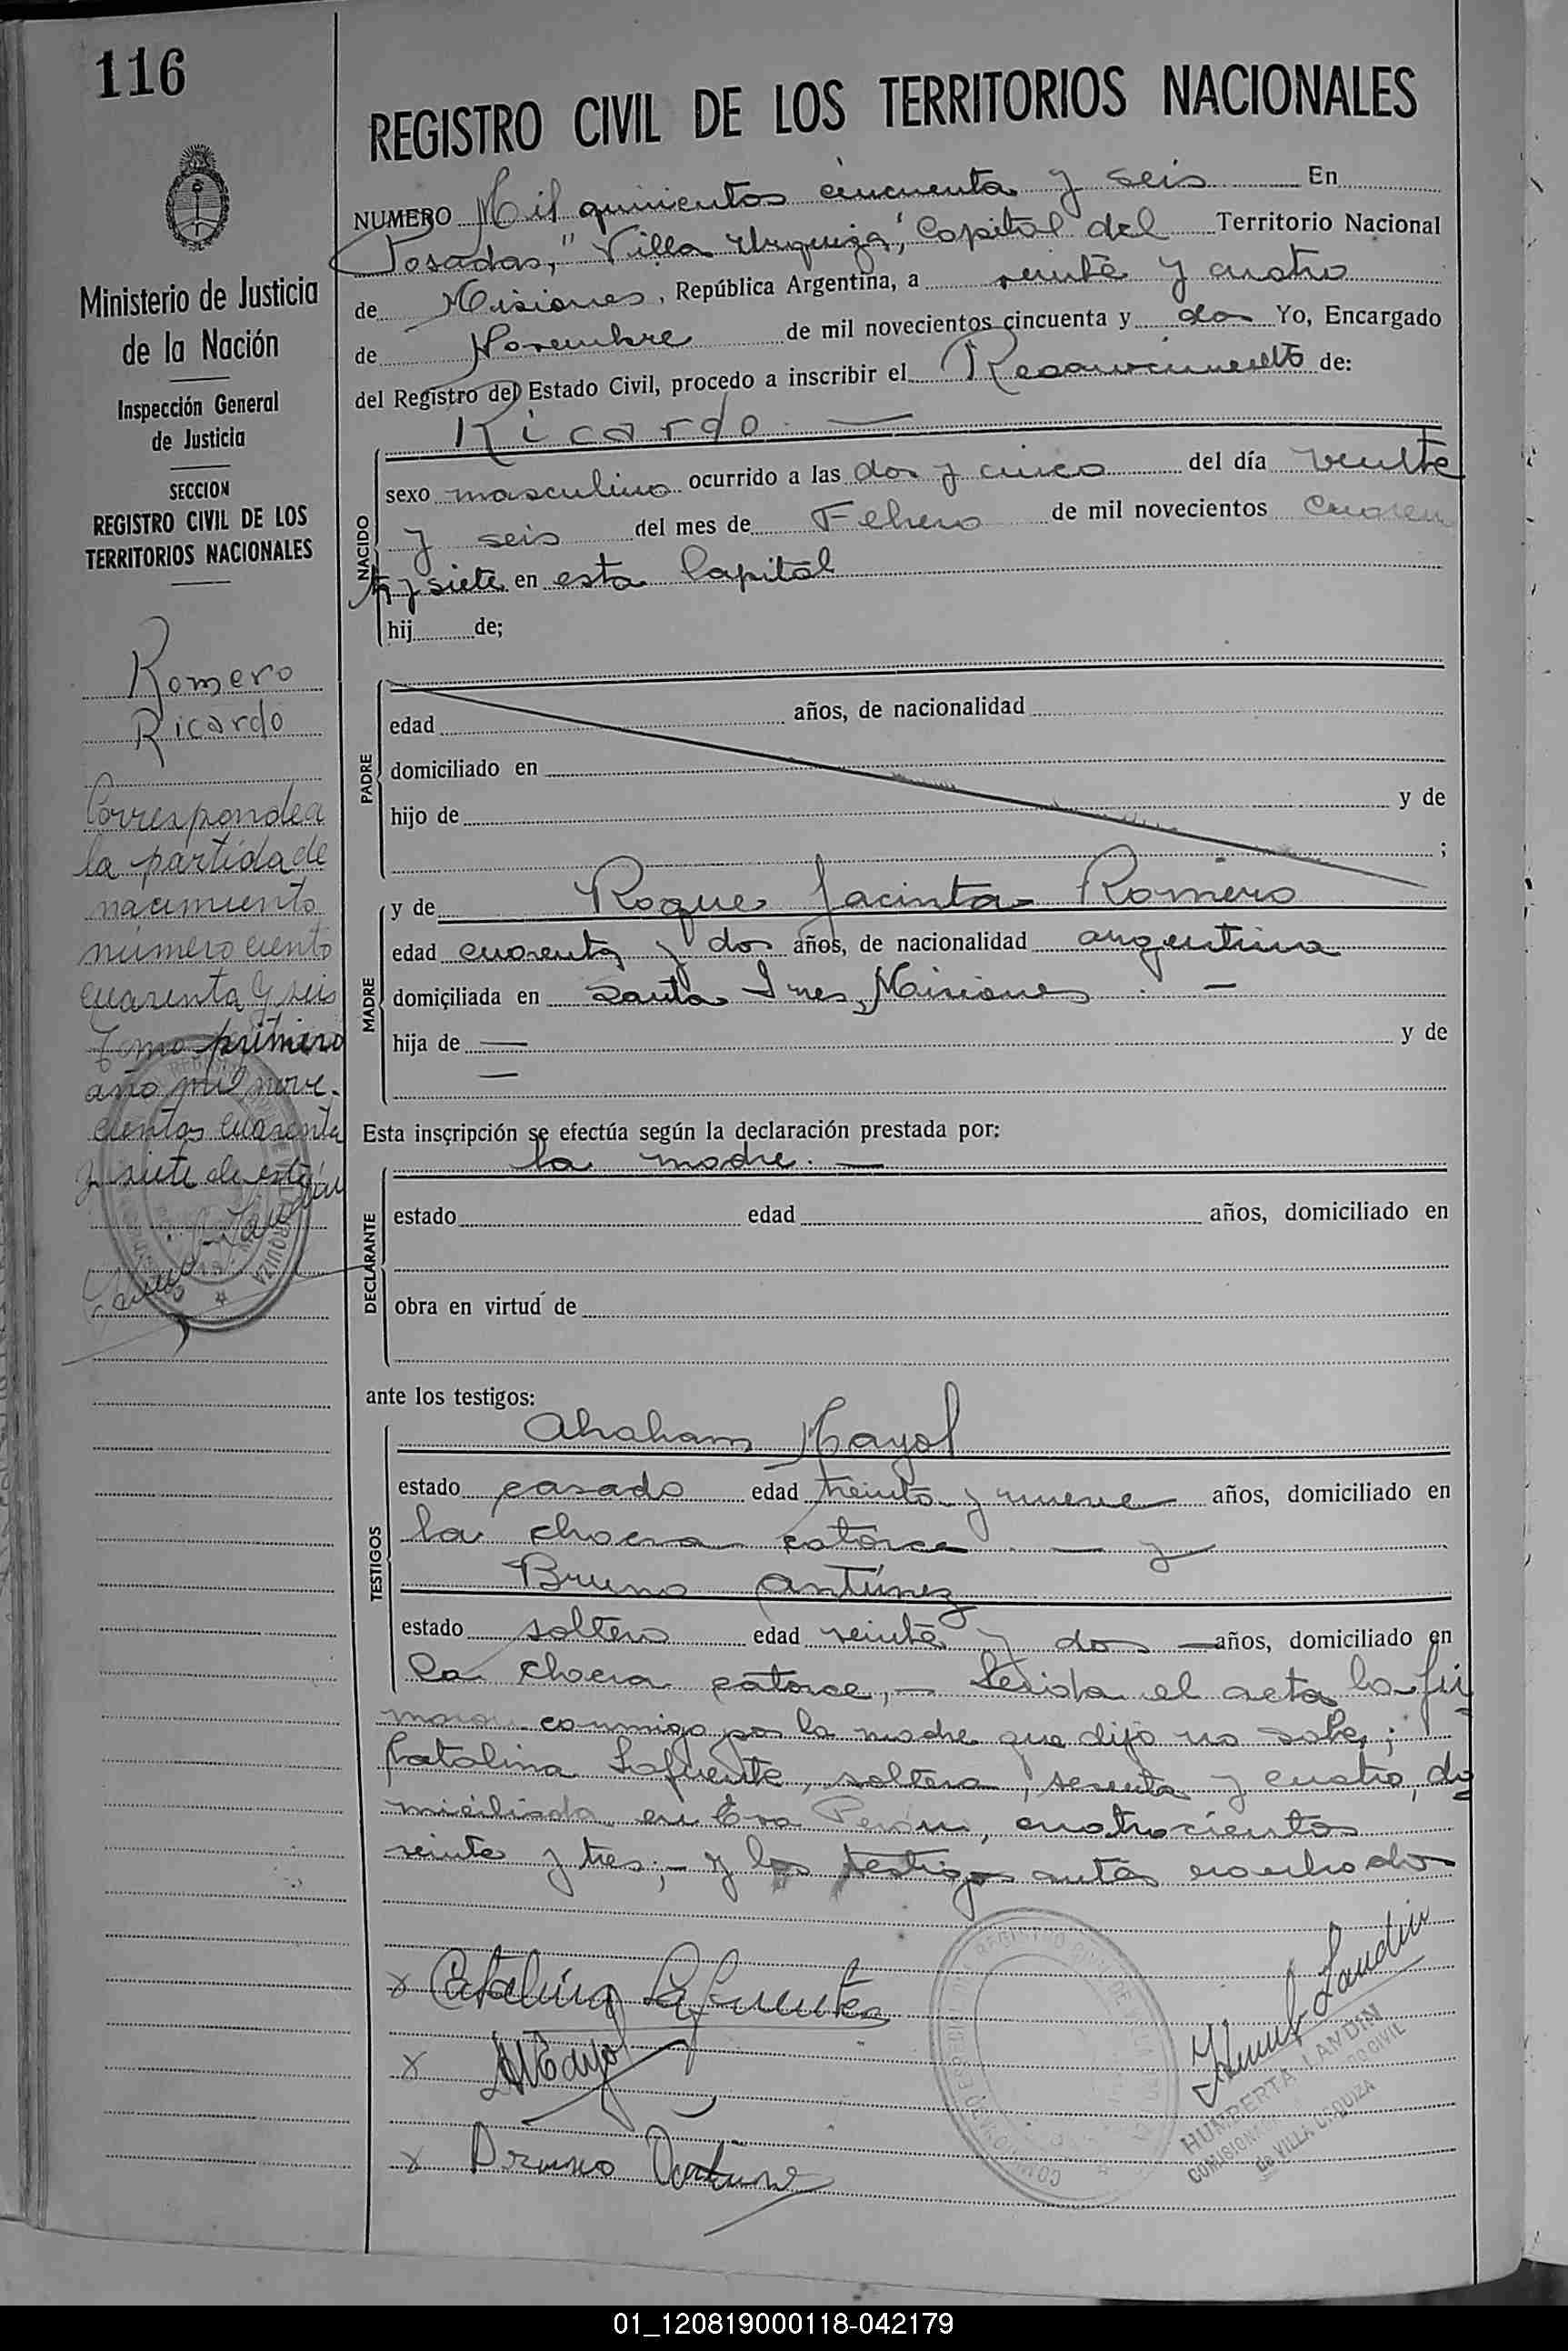 116
REGISTRO CIVIL DE LOS TERRITORIOS NACIONALES
NUMERO Mil quinientos cincuenta y seis En
Posadas, "Villa Urquiza", Capital del Territorio Nacional
de Misiones, República Argentina, a veinte y cuatro
de Noviembre de mil novecientos cincuenta y dos Yo, Encargado
del Registro del Estado Civil, procedo a inscribir el Reconocimiento de:
Ricardo. —
NACIDO
sexo masculino ocurrido a las dos y cinco del día veinte
y seis del mes de Febrero de mil novecientos cuaren
ta y siete en esta Capital
hij de;
PADRE
edad años, de nacionalidad
domiciliado en
hijo de y de
;
MADRE
y de Roque Jacinta Romero
edad cuarenta y dos años, de nacionalidad argentina
domiciliada en Santa Ines, Misiones. —
hija de — y de
—
Esta inscripción se efectúa según la declaración prestada por:
DECLARANTE
la madre. —
estado edad años, domiciliado en
obra en virtud de
ante los testigos:
TESTIGOS
Abraham Mayol
estado casado edad treinta y nueve años, domiciliado en
la chacra catorce. — y
Bruno Antúnez
estado soltero edad veinte y dos — años, domiciliado en
la chacra catorce, — Leida el acta la fir
maron conmigo por la madre que dijo no saber;
Catalina Lafuente, soltera, sesenta y cuatro, do
miciliada en Eva Perón, cuatrocientos
veinte y tres; - y los testigos antes nombrados
x Catalina Lafuente
x AMayol
x Bruno Antunez
Humb Landin
HUMBERTA LANDIN
de VILLA URQUIZA
Ministerio de Justicia
de la Nación
Inspección General
de Justicia
SECCION
REGISTRO CIVIL DE LOS
TERRITORIOS NACIONALES
Romero
Ricardo
Corresponde a
la partida de
nacimiento
número ciento
cuarenta y seis
Tomo primero
año mil nove-
cientos cuarenta
y siete de esta
01_120819000118-042179